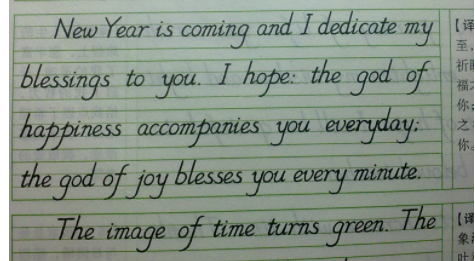 New Year is coming and I dedicate my
blessings to you. I hope: the god of
happiness accompanies you everyday;
the god of joy blesses you every minute.
The image of time turns green. The
【译
至,
福之
你;
之
你。
【译